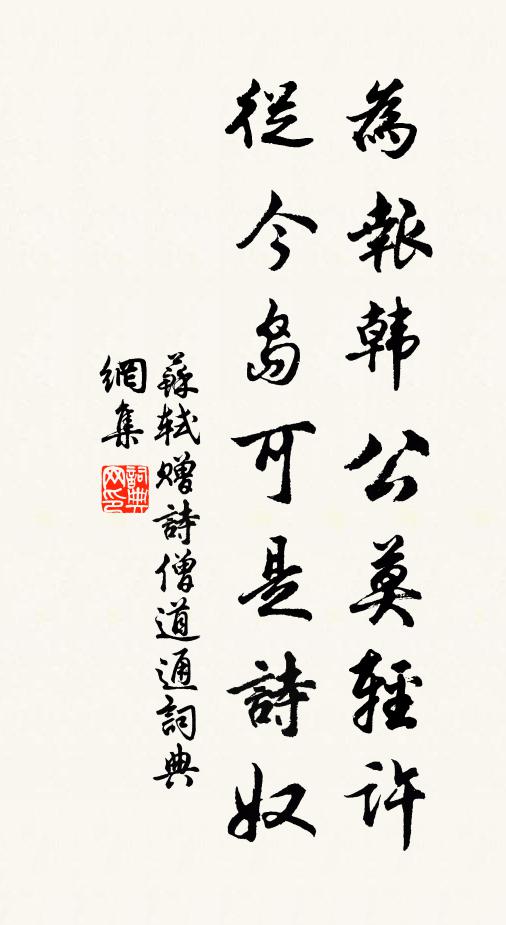 為報韓公莫輕許
從今島可是詩奴
蘇軾贈詩僧道通詞典
網集
詞典
网印